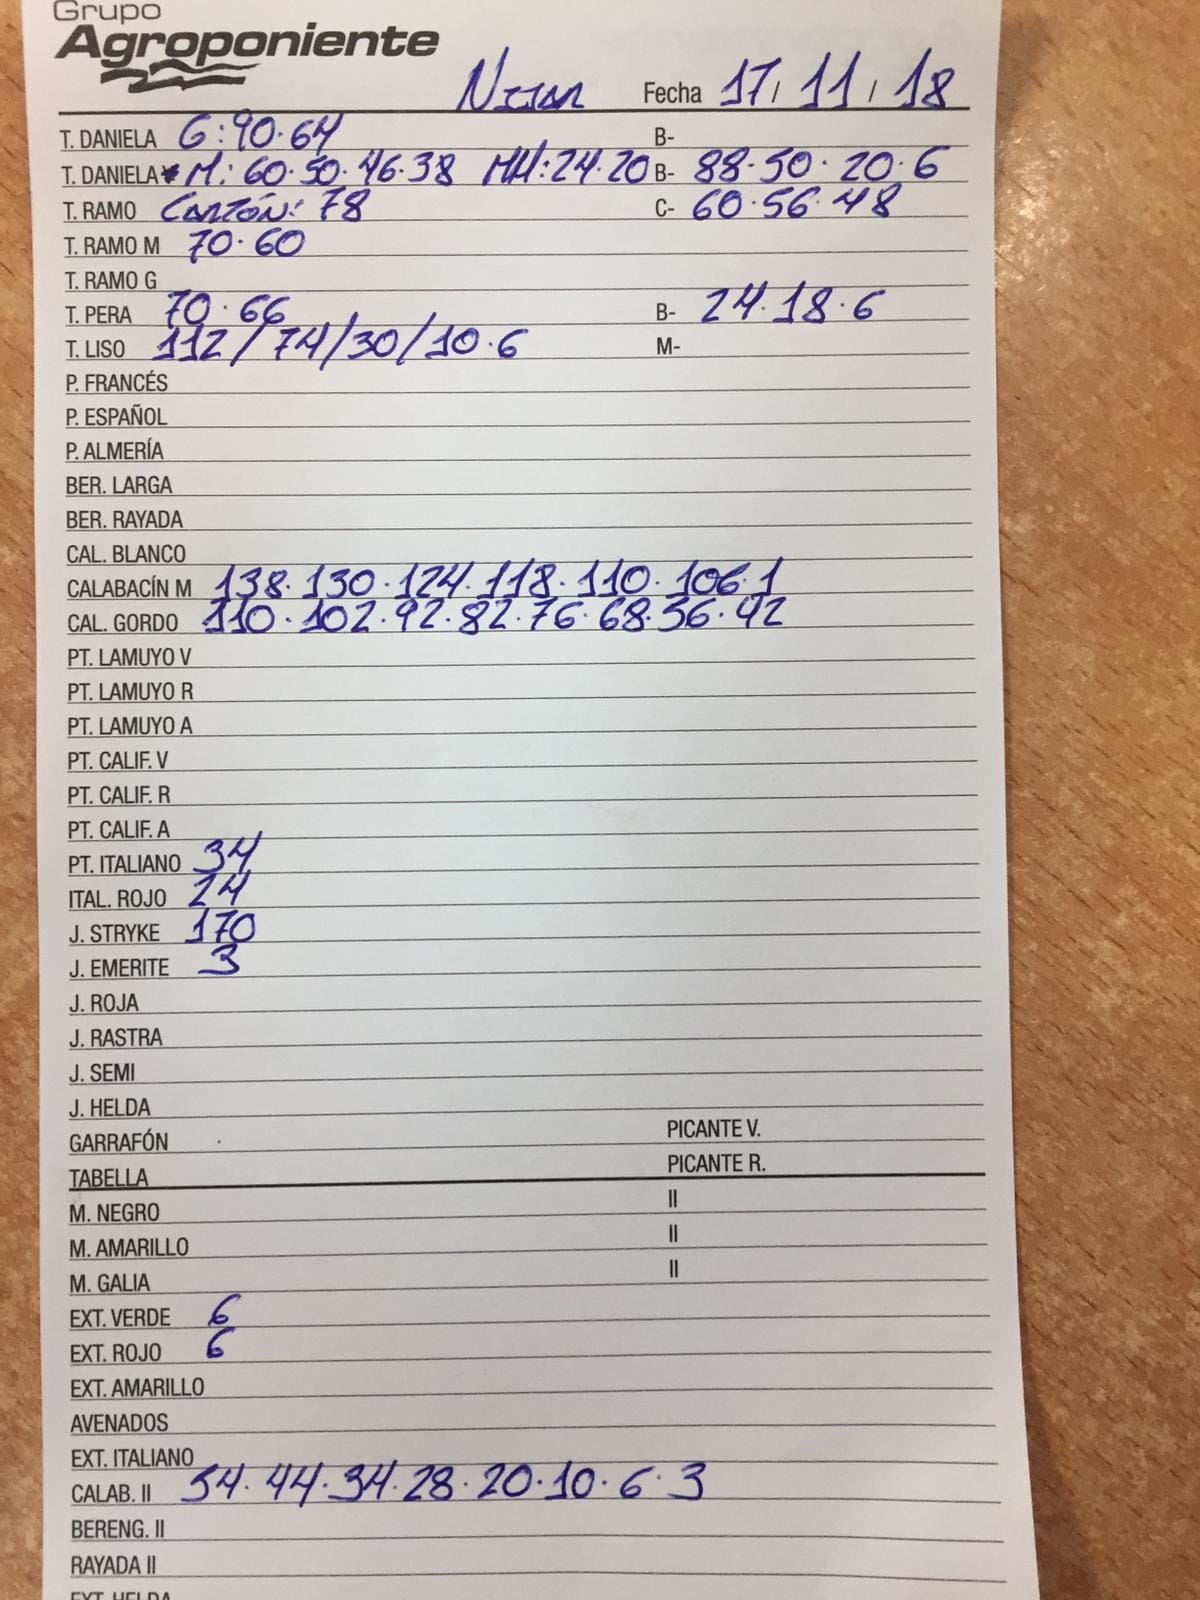 Grupo
Agroponiente
Nijar Fecha 17/11/18
T. DANIELA G: 90·64 B-
T. DANIELA M: 60·50·46·38 MM: 24·20 B- 88·50·20·6
T. RAMO Canzón: 78 C- 60·56·48
T. RAMO M 70·60
T. RAMO G
T. PERA 70·66 B- 24·18·6
T. LISO 112/74/30/10·6 M-
P. FRANCÉS
P. ESPAÑOL
P. ALMERÍA
BER. LARGA
BER. RAYADA
CAL. BLANCO
CALABACÍN M 138·130·124·118·110·106·1
CAL. GORDO 110·102·92·82·76·68·56·42
PT. LAMUYO V
PT. LAMUYO R
PT. LAMUYO A
PT. CALIF. V
PT. CALIF. R
PT. CALIF. A
PT. ITALIANO 34
ITAL. ROJO 24
J. STRYKE 170
J. EMERITE 3
J. ROJA
J. RASTRA
J. SEMI
J. HELDA
GARRAFÓN PICANTE V.
TABELLA PICANTE R.
M. NEGRO II
M. AMARILLO II
M. GALIA II
EXT. VERDE 6
EXT. ROJO 6
EXT. AMARILLO
AVENADOS
EXT. ITALIANO
CALAB. II 54·44·34·28·20·10·6·3
BERENG. II
RAYADA II
EXT. HELDA